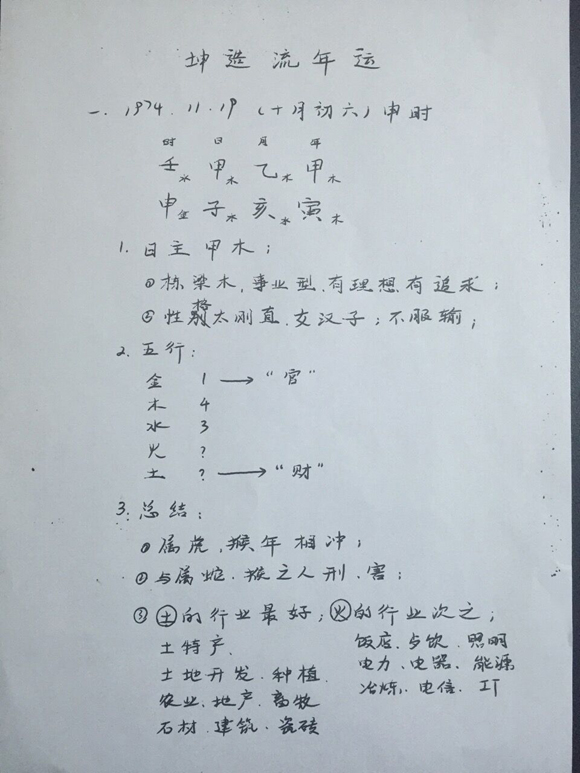 坤造流年运
一.1974.11.19(十月初六)申时
时 日 月 年
壬水 甲木 乙木 甲木
申金 子水 亥水 寅木
1.日主甲木;
①栋梁木,事业型.有理想有追求;
②性格太刚直.女汉子;不服输;
2.五行:
金 1 → "官"
木 4
水 3
火 ?
土 ? → "财"
3.总结:
①属虎,猴年相冲;
②与属蛇.猴之人刑.害;
③土的行业最好;火的行业次之;
土特产. 饭店.与饮.照明
土地开发.种植. 电力、电器、能源
农业、地产、畜牧 冶炼、电信.IT
石材.建筑.瓷砖